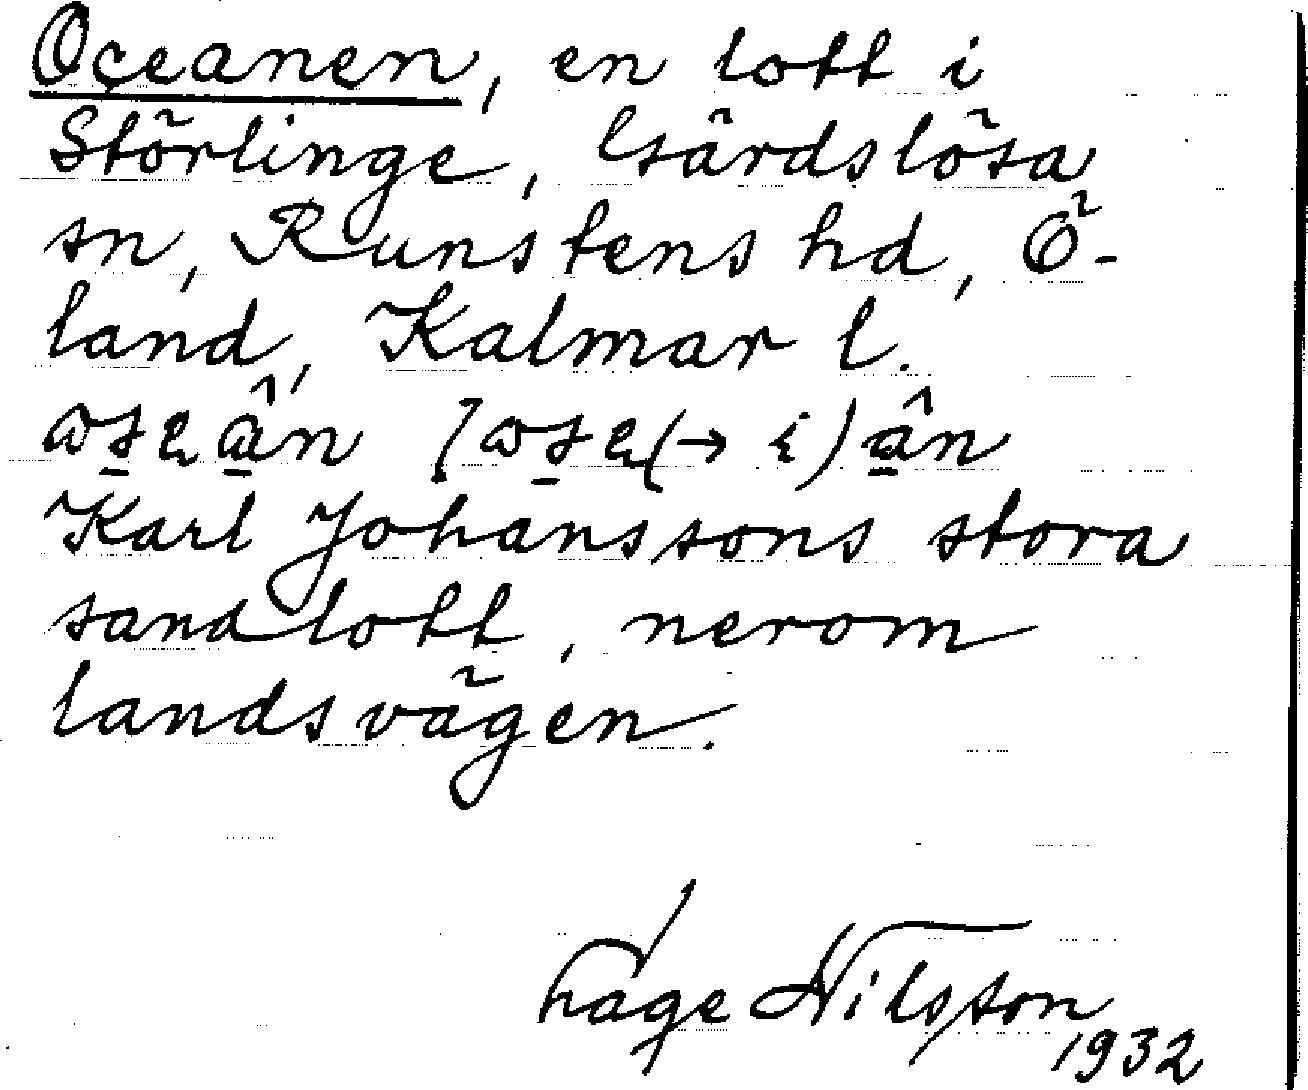 Oceanen, en lott i
Störlinge, Gärdslösa
sn, Runstens hd, Ö-
land, Kalmar l.
Karl Johanssons stora
sandlott, nerom
landsvägen.
Tage Nilsson
1932